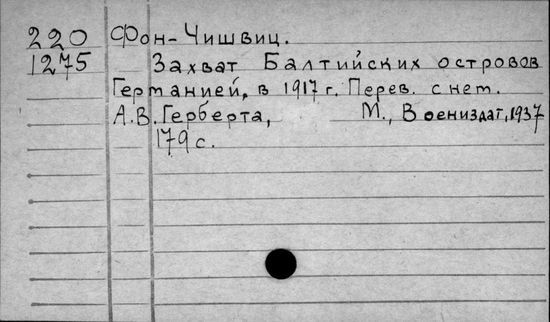 220 Фон-Чишвиц.
1275 Захват Балтийских островов
Германией, в 1917 г. Перев. с нем.
А.В. Герберта, М., Воениздат, 1937
179 с.